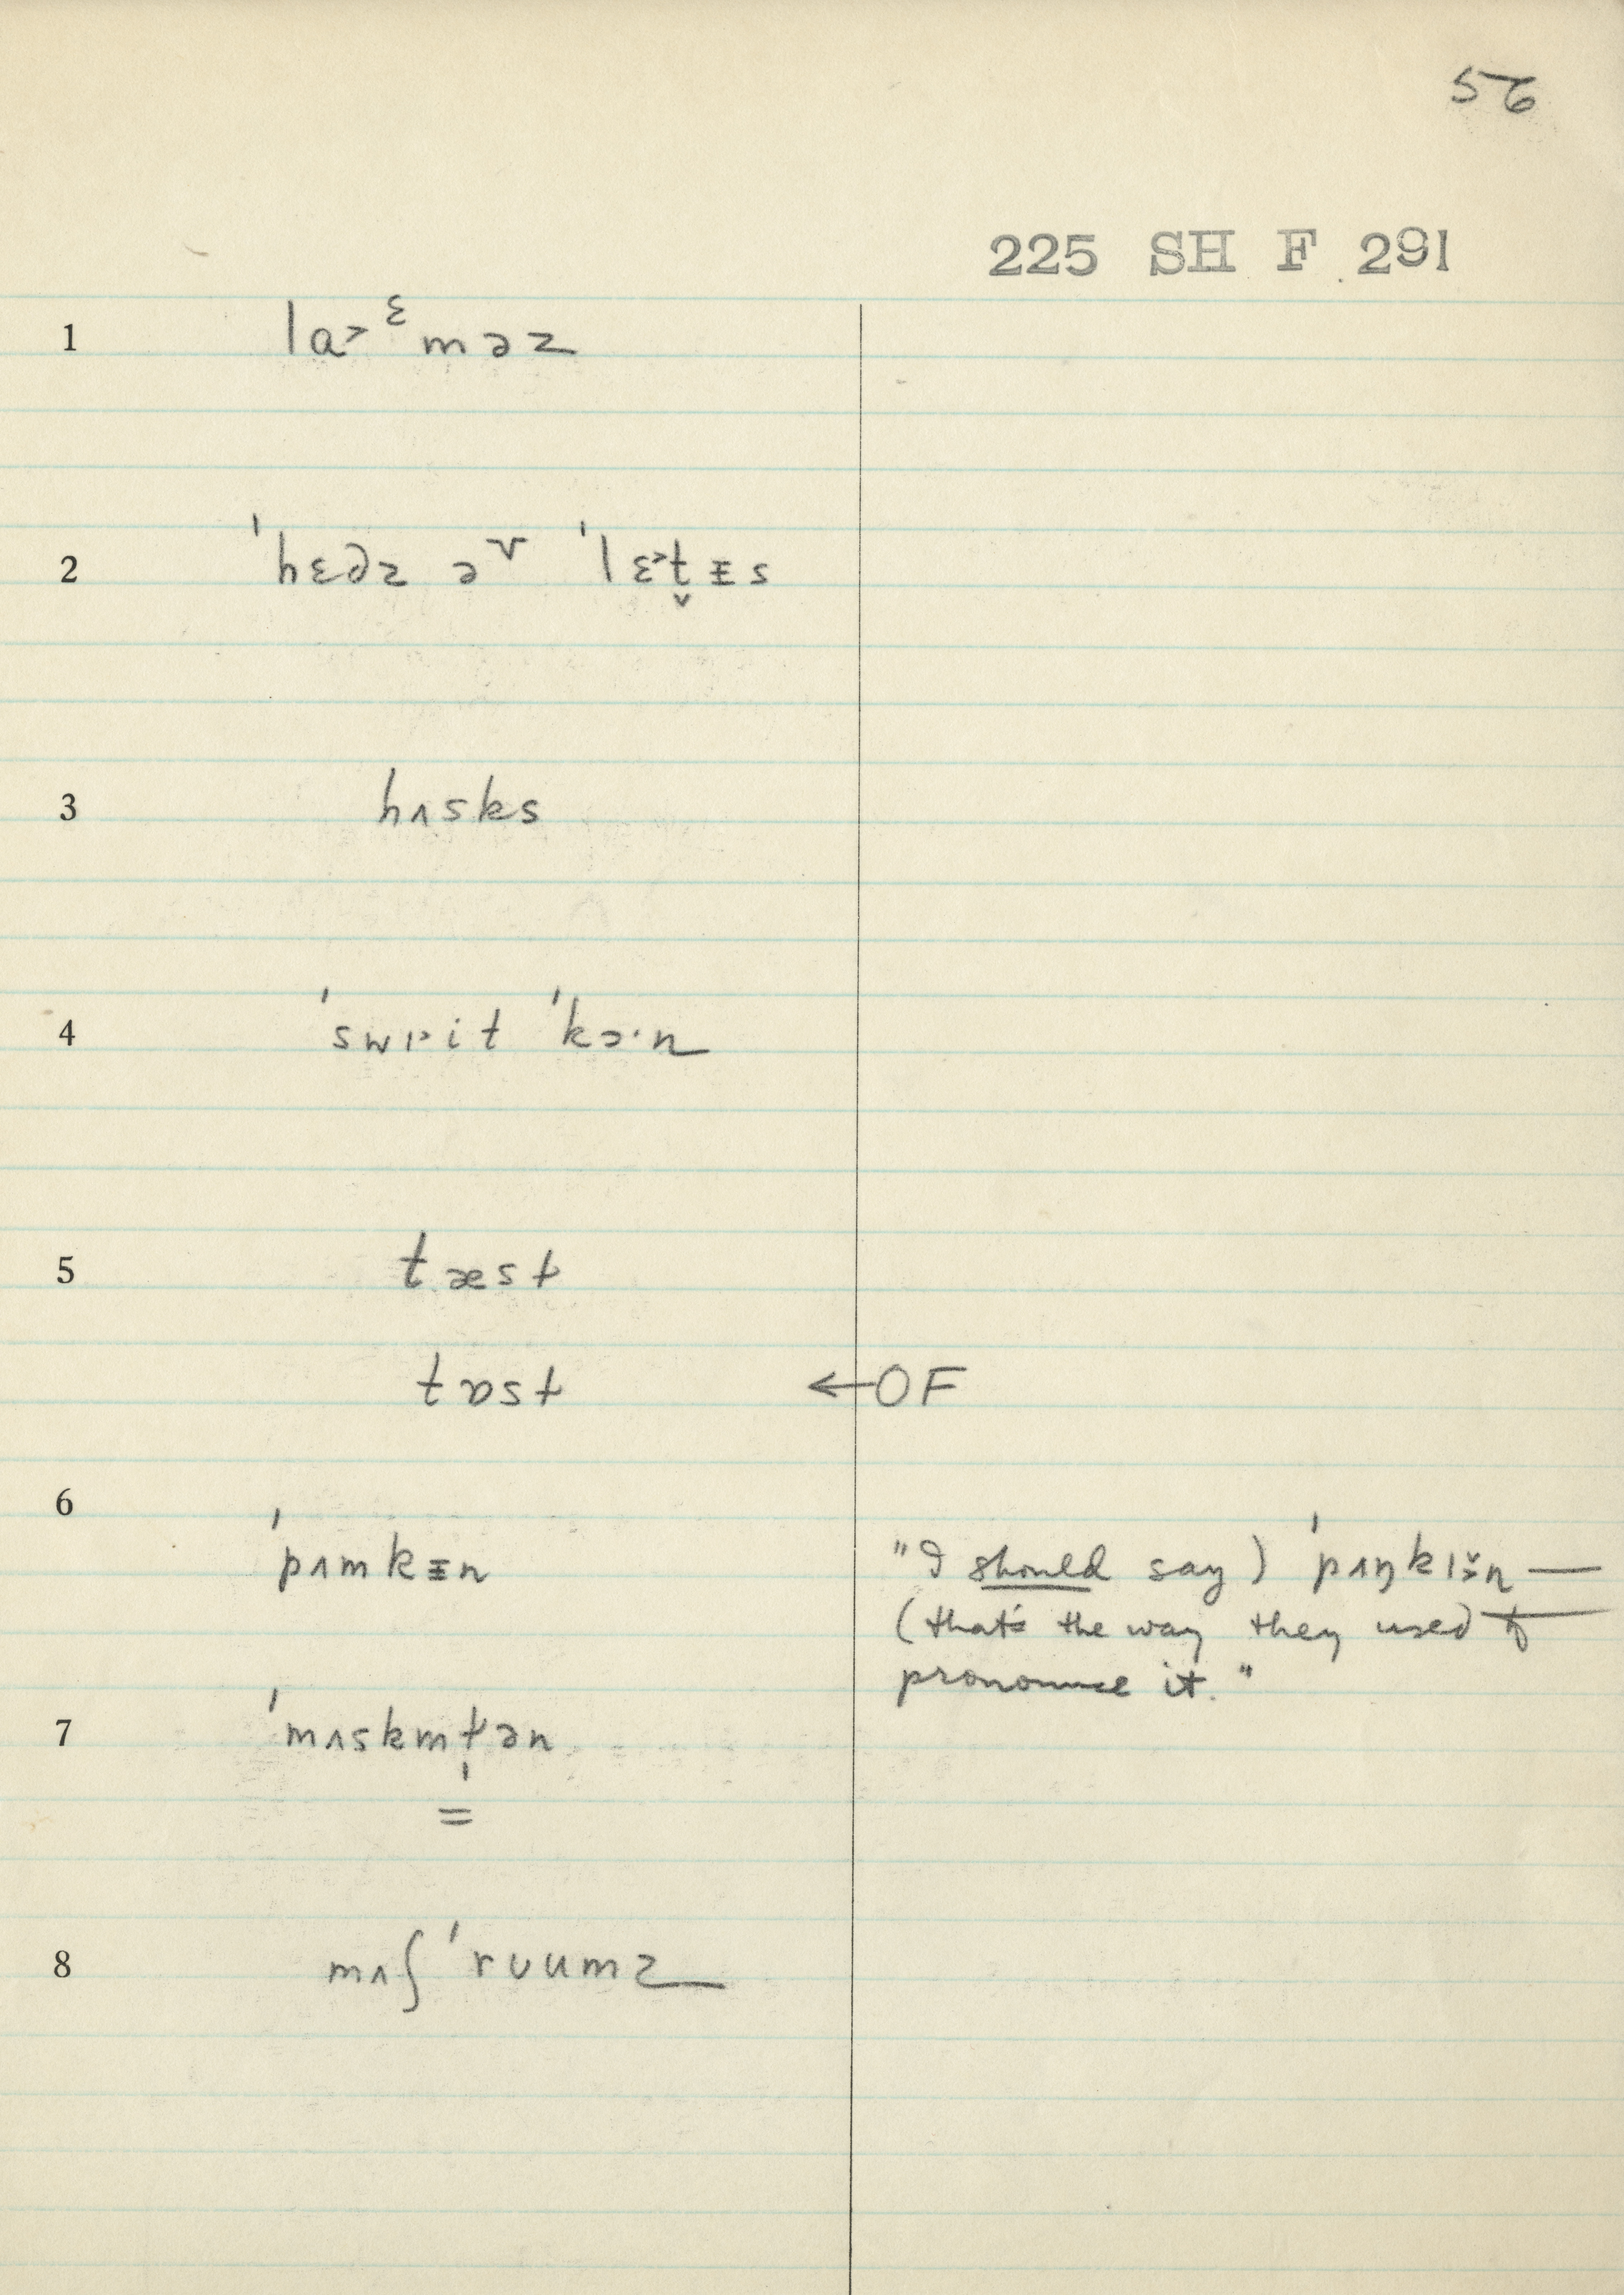 56
225 SH F 291
1 la˃ᵋməz
2 ˈhɛdz əᵛ ˈlɛ˃t̬ᵻs
3 hʌsks
4 ˈswɪ˃it ˈkɔ·n
5 tæst
tɒst ←OF
6 ˈpʌmkᵻn "I should say) ˈpʌŋkɪ̌˃n —
(that's the way they used to
pronounce it."
7 ˈmʌskmt̩ən
=
8 mʌʃ ˈrʊumz